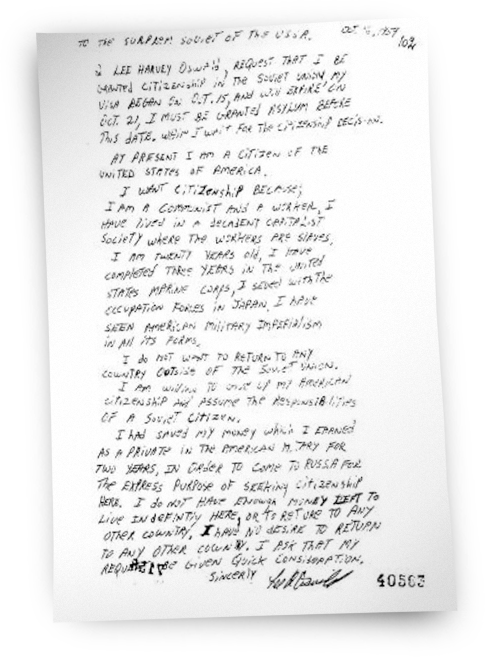 TO THE SUPREM SOVIET OF THE U.S.S.R.
OCT. 16, 1959
I LEE HARVEY Oswald, REQUEST THAT I BE
GRANTED CITIZENSHIP IN THE SOVIET UNION, MY
VISA BEGAN ON OCT. 15, AND WILL EXPIRE ON
OCT. 21, I MUST BE GRANTED ASYLUM BEFORE
THIS DATE. WHILE I WAIT FOR THE CITIZENSHIP DECISION.
AT PRESENT I AM A CITIZEN OF THE
UNITED STATES OF AMERICA.
I WANT CITIZENSHIP BECAUSE;
I AM A COMMUNIST AND A WORKER, I
HAVE LIVED IN A DECADENT CAPITALIST
SOCIETY WHERE THE WORKERS ARE SLAVES.
I AM TWENTY YEARS OLD, I HAVE
COMPLETED THREE YEARS IN THE UNITED
STATES MARINE CORPS, I SERVED WITH THE
OCCUPATION FORCES IN JAPAN, I HAVE
SEEN AMERICAN MILITARY IMPERIALISM
IN All ITS FORMS.
I DO NOT WANT TO RETURN TO ANY
COUNTRY OUTSIDE OF THE SOVIET UNION.
I AM WILLING TO GIVE UP MY AMERICAN
CITIZENSHIP AND ASSUME THE RESPONSIBILITIES
OF A SOVIET CITIZEN.
I HAD SAVED MY MONEY WHICH I EARNED
AS A PRIVATE IN THE AMERICAN MILTARY FOR
TWO YEARS, IN ORDER TO COME TO RUSSIA FOR
THE EXPRESS PURPOSE OF SEEKING CITIZENSHIP
HERE. I DO NOT HAVE ENOUGH MONEY LEFT TO
LIVE INDEFINTLY HERE, OR TO RETURE TO ANY
OTHER COUNTRY. I HAVE NO DESIRE TO RETURN
TO ANY OTHER COUNTRY. I ASK THAT MY
REQUEST BE GIVEN QUICK CONSIDORATION.
SINCERLY
40563